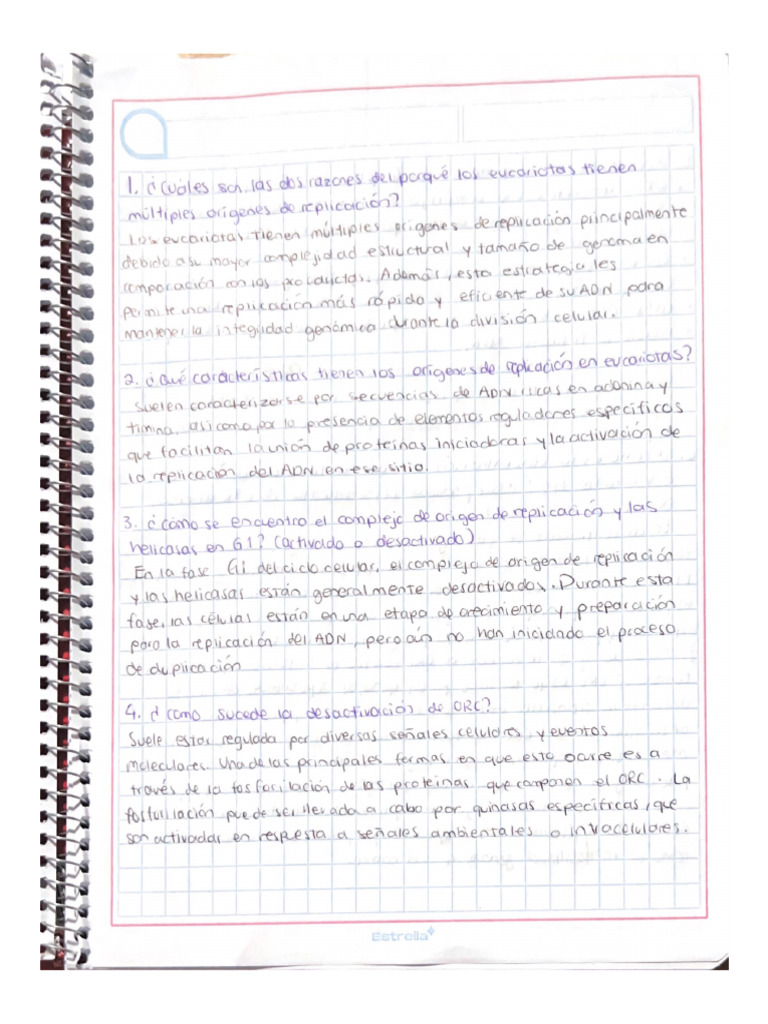 1. ¿Cuáles son las dos razones del porqué los eucariotas tienen
múltiples orígenes de replicación?
Los eucariotas tienen múltiples orígenes de replicación principalmente
debido a su mayor complejidad estructural y tamaño de genoma en
comparación con los productos. Además, esta estrategia les
permite una replicación más rápida y eficiente de su ADN para
mantener la integridad genómica durante la división celular.
2. ¿Qué características tienen los orígenes de replicación en eucariotas?
Suelen caracterizarse por secuencias de ADN ricas en adenina y
timina, asi como por la presencia de elementos reguladores específicos
que facilitan la unión de proteínas iniciadoras y la activación de
la replicación del ADN en ese sitio.
3. ¿cómo se encuentra el complejo de origen de replicación y las
helicasas en G1? (activado o desactivado)
En la fase G1 del ciclo celular, el complejo de origen de replicación
y las helicasas están generalmente desactivados. Durante esta
fase, las células están en una etapa de crecimiento y preparación
para la replicación del ADN, pero aún no han iniciado el proceso
de duplicación
4. ¿Cómo sucede la desactivación de ORC?
Suele estar regulada por diversas señales celulores y eventos
moleculares. Una de las principales formas en que esto ocurre es a
través de la fosforilación de las proteínas que componen el ORC. La
fosforilación puede ser llevada a cabo por quinasas específicas, que
son activadas en respuesta a señales ambientales o invacelulores.
Estrella